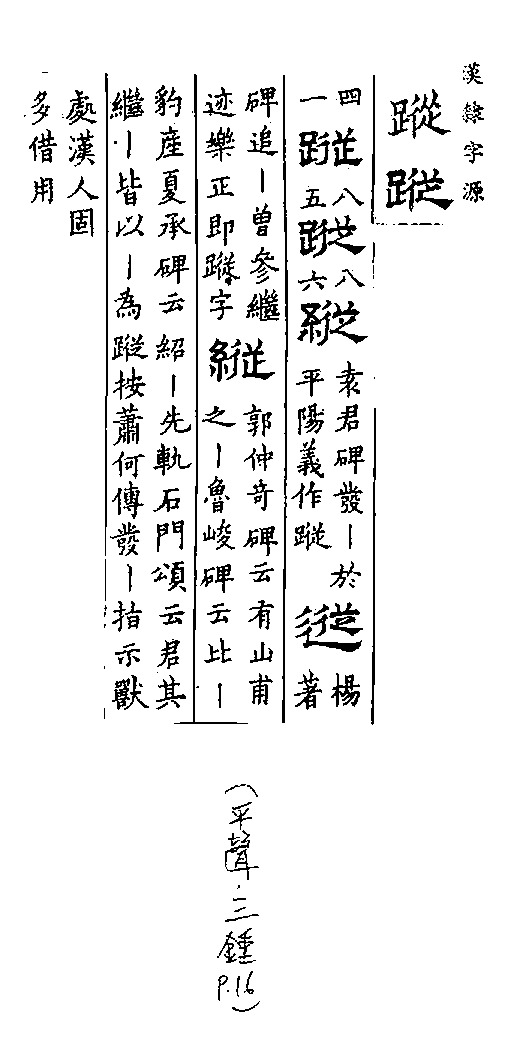 漢隸字源
蹤
蹤
四一
蹤
八五
蹤
八六
縱
袁君碑發丨於
平陽義作蹤
楊著
碑追丨曾參繼
迹樂正即蹤字
縱
郭仲奇碑云有山甫
之丨魯峻碑云比丨
豹産夏承碑云紹丨先軌石門頌云君其
繼丨皆以丨為蹤按蕭何傳發丨指示獸
處漢人固
多借用
(平聲.三鍾 P.16)